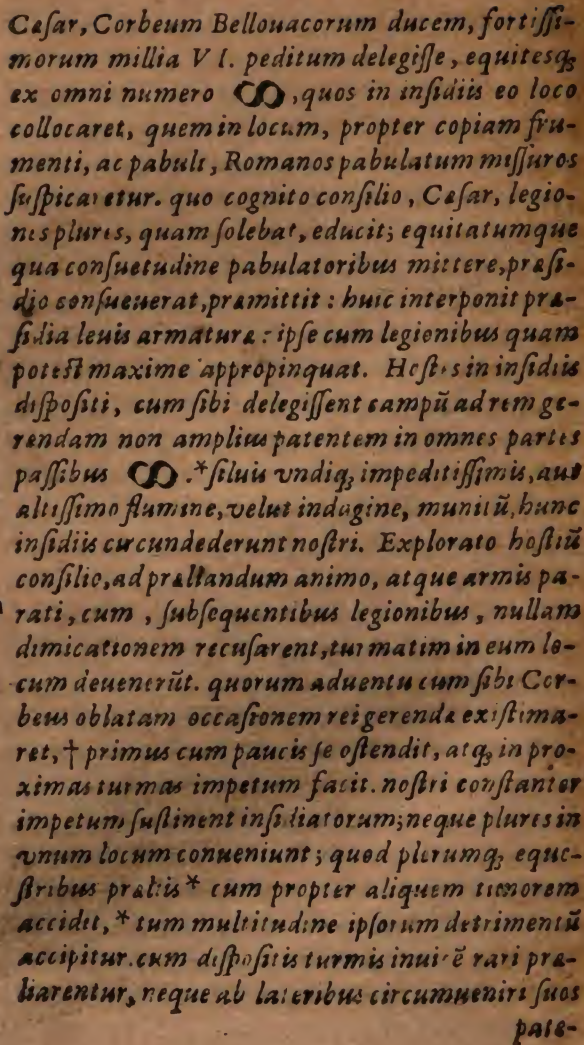 Cæsar, Corbeum Bellouacorum ducem, fortißi-
morum millia VI. peditum delegiße, equitesq;
ex omni numero ↀ, quos in insidiis eo loco
collocaret, quem in locum, propter copiam fru-
menti, ac pabuli, Romanos pabulatum mißuros
suspicaretur. quo cognito consilio, Cæsar, legio-
nes plures, quam solebat, educit; equitatumque
qua consuetudine pabulatoribus mittere, præsi-
dio consueuerat, præmittit: huic interponit præ-
sidia leuis armaturæ: ipse cum legionibus quam
potest maxime appropinquat. Hostes in insidiis
dispositi, cum sibi delegissent campū ad rem ge-
rendam non amplius patentem in omnes partes
passibus ↀ.*siluis vndiq; impeditißimis, aut
altißimo flumine, velut indagine, munitū, hunc
insidiis circundederunt nostri. Explorato hostiū
consilio, ad præliandum animo, atque armis pa-
rati, cum, subsequentibus legionibus, nullam
dimicationem recusarent, turmatim in eum lo-
cum deuenerūt. quorum aduentu cum sibi Cor-
beus oblatam occasionem rei gerendæ existima-
ret, † primus cum paucis se ostendit, atq; in pro-
ximas turmas impetum facit. nostri constanter
impetum sustinent insidiatorum; neque plures in
vnum locum conueniunt; quod plerumq; eque-
stribus præliis* cum propter aliquem timorem
accidit, * tum multitudine ipsorum detrimentū
accipitur. cum dispositis turmis inuicē rari præ-
liarentur, neque ab lateribus circumueniri suos
pate-